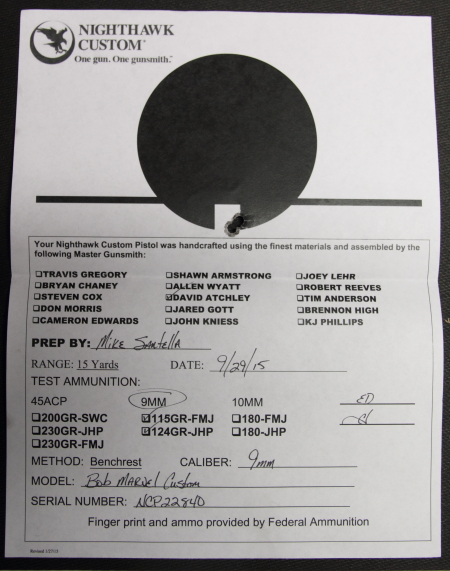 NIGHTHAWK
CUSTOM
One gun. One gunsmith.™
Your Nighthawk Custom Pistol was handcrafted using the finest materials and assembled by the
following Master Gunsmith:
☐TRAVIS GREGORY ☐SHAWN ARMSTRONG ☐JOEY LEHR
☐BRYAN CHANEY ☐ALLEN WYATT ☐ROBERT REEVES
☐STEVEN COX ☑DAVID ATCHLEY ☐TIM ANDERSON
☐DON MORRIS ☐JARED GOTT ☐BRENNON HIGH
☐CAMERON EDWARDS ☐JOHN KNIESS ☐KJ PHILLIPS
PREP BY: Mike Santella
RANGE: 15 Yards DATE: 9/29/15
TEST AMMUNITION:
45ACP 9MM 10MM ED
☐200GR-SWC ☑115GR-FMJ ☐180-FMJ
☐230GR-JHP ☑124GR-JHP ☐180-JHP
☐230GR-FMJ
METHOD: Benchrest CALIBER: 9mm
MODEL: Bob Marvel Custom
SERIAL NUMBER: NCP22840
Finger print and ammo provided by Federal Ammunition